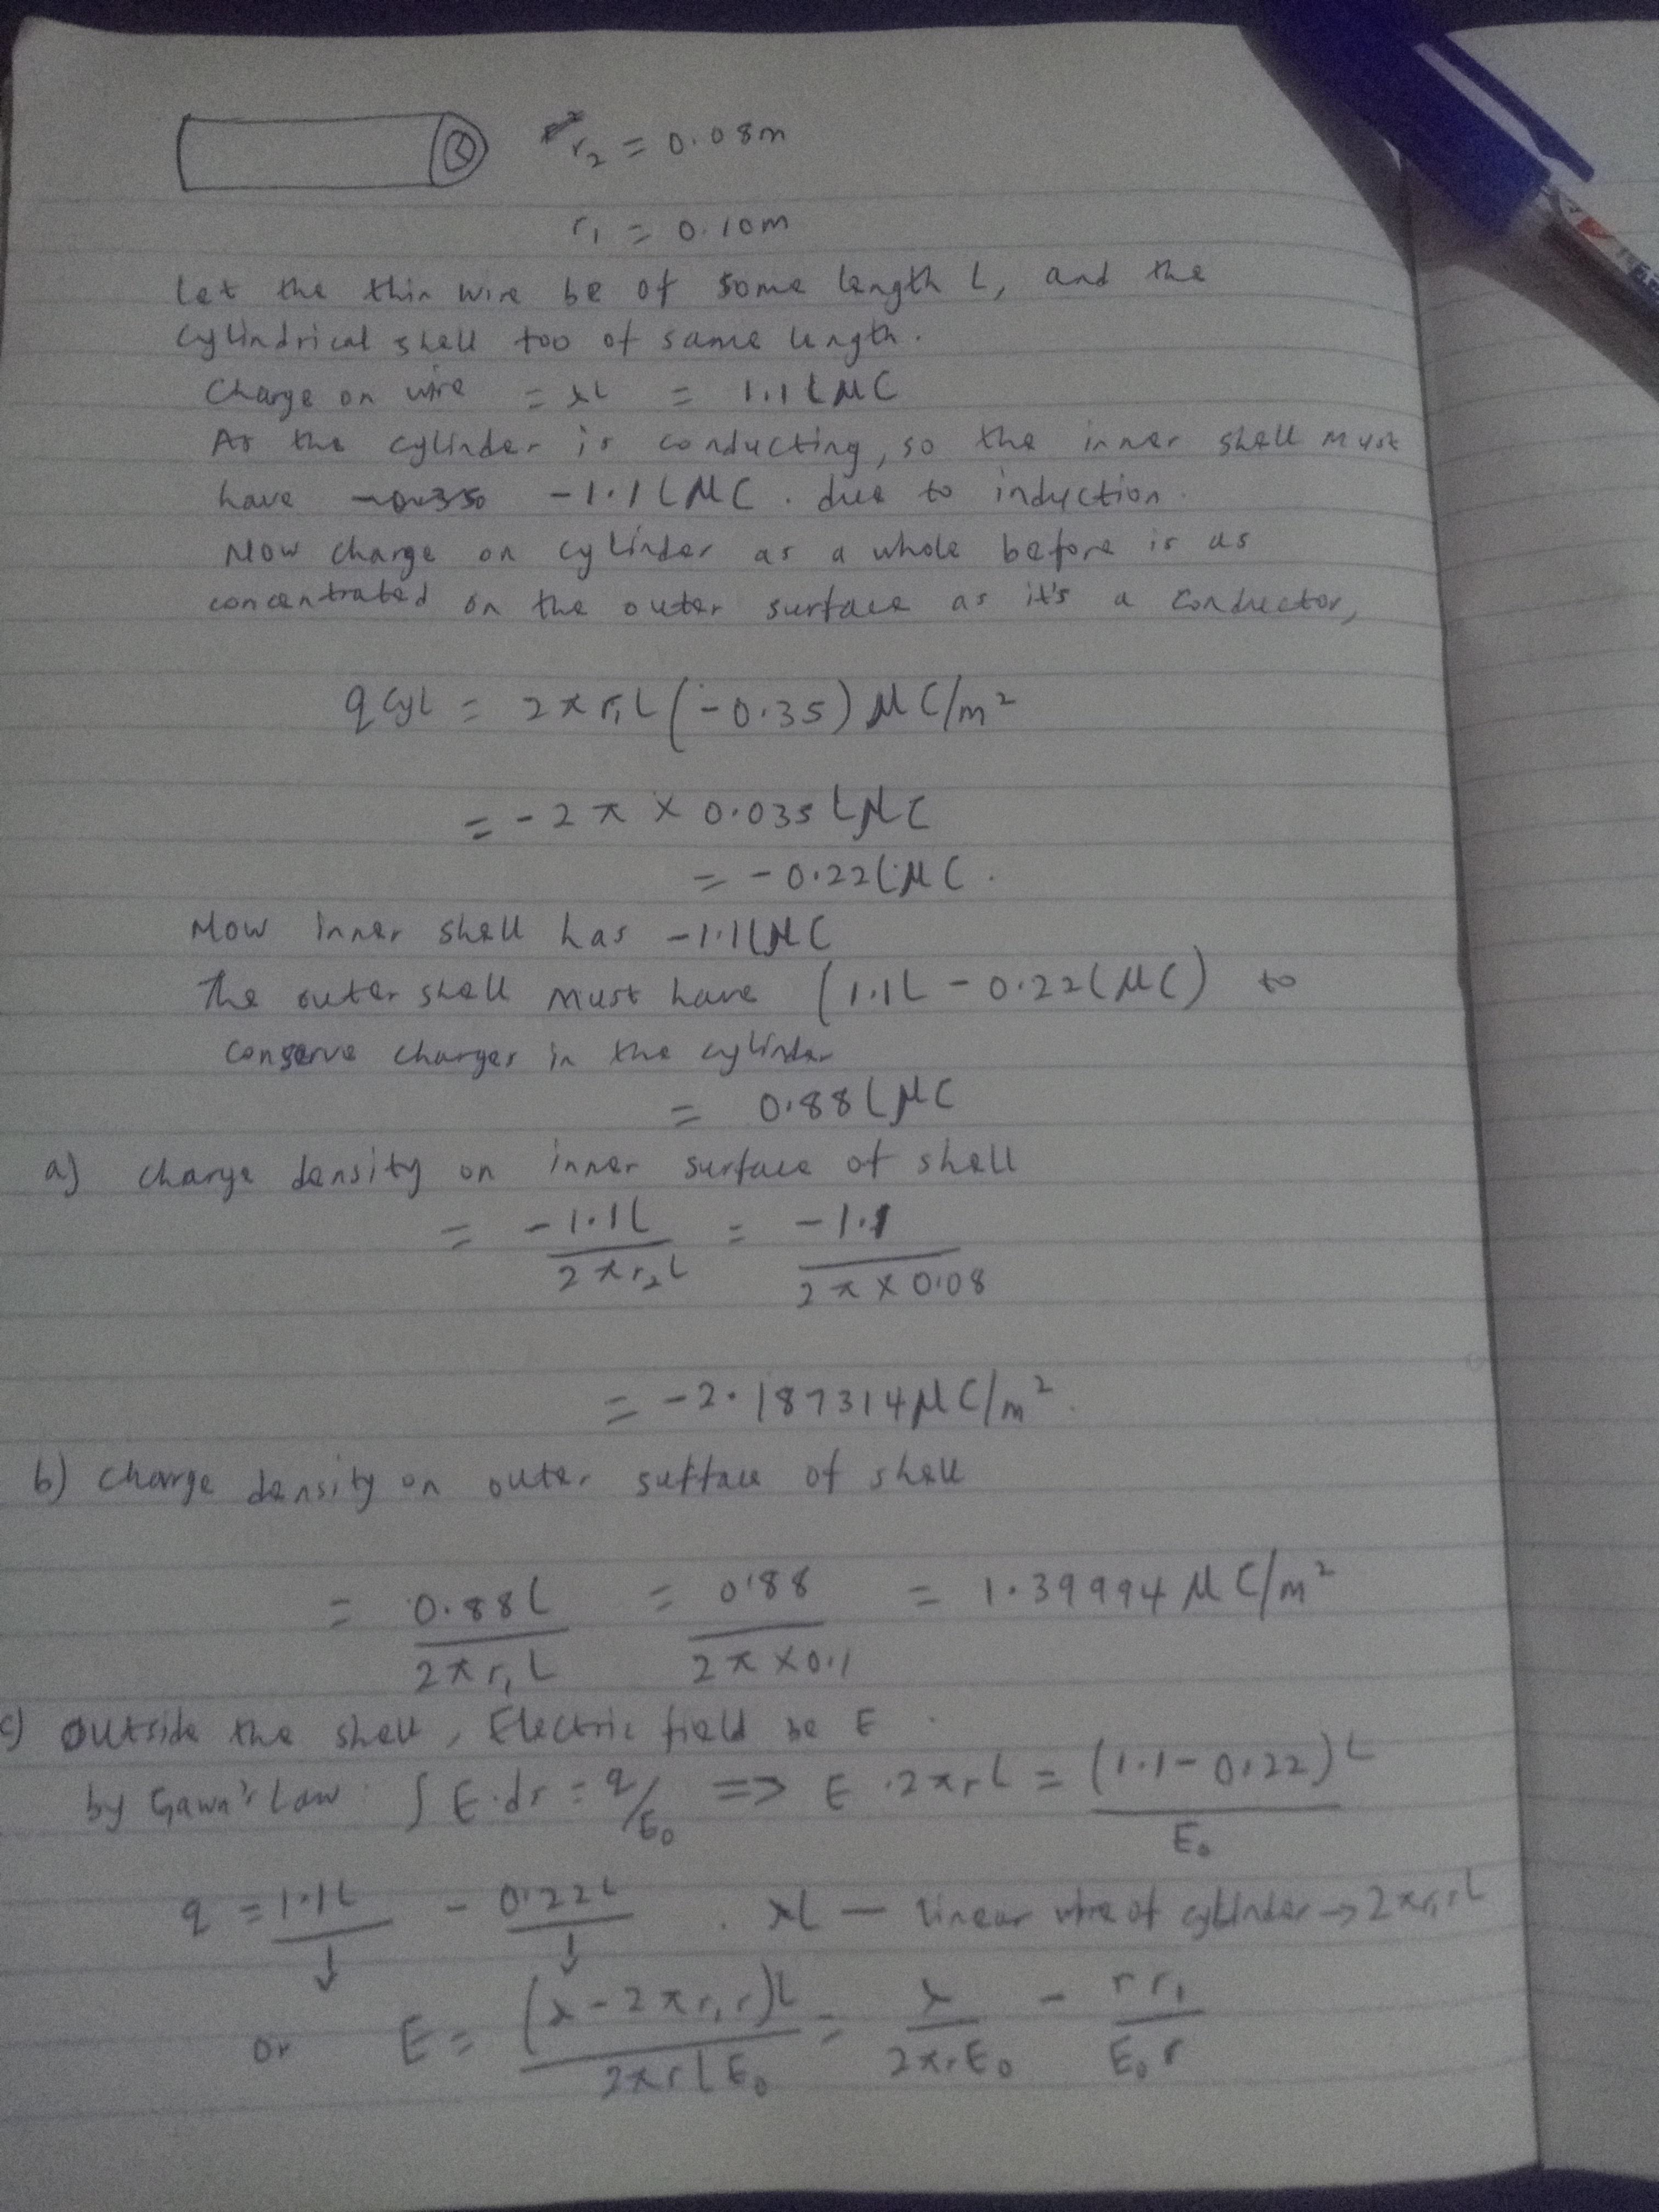 r₂ = 0.08m
r₁ = 0.10m
Let the thin wire be of some length L, and the
cylindrical shell too of same length.
Charge on wire = λL = 1.1LμC
As the cylinder is conducting, so the inner shell must
have -1.1LμC. due to induction.
Now charge on cylinder as a whole before is as
concentrated on the outer surface as it's a conductor,
q cyl = 2πr₁L(-0.35)μC/m²
= -2π × 0.035LμC
= -0.22LμC.
Now inner shell has -1.1LμC
The outer shell must have (1.1L - 0.22LμC) to
conserve charges in the cylinder
= 0.88LμC
a) charge density on inner surface of shell
= -1.1L / 2πr₂L = -1.1 / 2π × 0.08
= -2.187314μC/m².
b) charge density on outer surface of shell
= 0.88L / 2πr₁L = 0.88 / 2π × 0.1 = 1.39994μC/m²
c) Outside the shell, Electric field be E.
by Gawn's Law: ∫E.ds = q/E₀ => E.2πrL = (1.1-0.22)L / E₀
q = 1.1L - 0.22L . λL — linear wire of cylinder → 2πr₁rL
or E = (λ-2πr₁r)L / 2πrLE₀ = λ / 2πrE₀ - rr₁ / E₀r